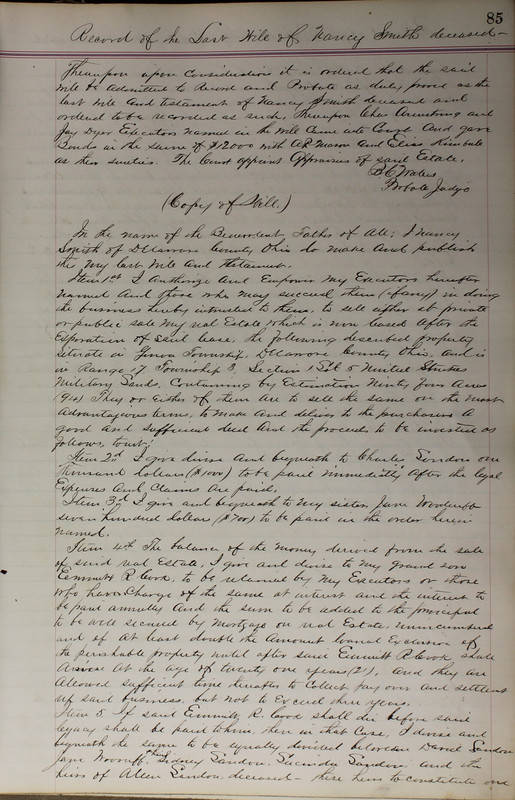 85
Record of the Last Will of Nancy Smith deceased
Thereupon upon Consideration it is ordered that the said
Will be admitted to Record and Probate as duly proved as the
last Will And testament of Nancy Smith deceased and
ordered to be recorded as such, Thereupon Chas Armstrong and
Jay Dyer Executors named in the Will Came into Court And gave
Bonds in the sum of $12000 with A.R. Mason And Elias Kimball
as their sureties. The Court appoint Appraisers of said Estate.
B C Waters
Probate Judge
(Copy of Will.)
In the name of the Benevolent Father of All; I Nancy
Smith of Delaware County Ohio do make And publish
this My last Will And Testament.
Item 1st I Authorize And Empower My Executors hereafter
named And those who may succeed them (if any) in doing
the business hereby intrusted to them, to sell either at private
or public sale My real Estate which is now leased After the
Expiration of said lease, the following described property
situate in Genoa Township, Delaware County Ohio, and is
in Range 17 Township 3, Section 1 United States
Military Lands, Containing by Estimation Ninety four Acres
(94) They or Either of them are to sell the same on the Most
Advantageous terms, to make And deliver to the purchasers A
good and sufficient deed And the proceeds to be invested as
follows, towit:
Item 2nd I give devise And bequeath to Charles Sindon one
Thousand Dollars ($1000) to be paid immediately After the legal
Expenses And Claims are paid.
Item 3d I give and bequeath to My sister Jane Woodruff
seven hundred dollars ($700) to be paid in the order herein
named.
Item 4th The balance of the money derived from the sale
of said real Estate, I give and devise to My grand son
Emmitt R Cook, to be retained by My Executors or those
who have Charge of the same at interest and the interest to
be paid annually And the sum to be added to the principal
to be well secured by Mortgage on real Estate, unincumbered
and of At least double the Amount loaned Exclusive of
the perishable property until after said Emmitt R Cook shall
Arrive At the age of twenty one years (21), And they are
Allowed sufficient time thereafter to Collect pay over and settle
up said business, but not to Exceed three years.
Item 5 If said Emmitt R. Cook shall die before said
legacy shall be paid to him, then in that Case, I devise and
bequeath the same to be equally divided between David Sindon
Jane Woodruff, Sidney Sindon, Lucinda Sindon and the
heirs of Allen Sindon, deceased - these heirs to constitute one